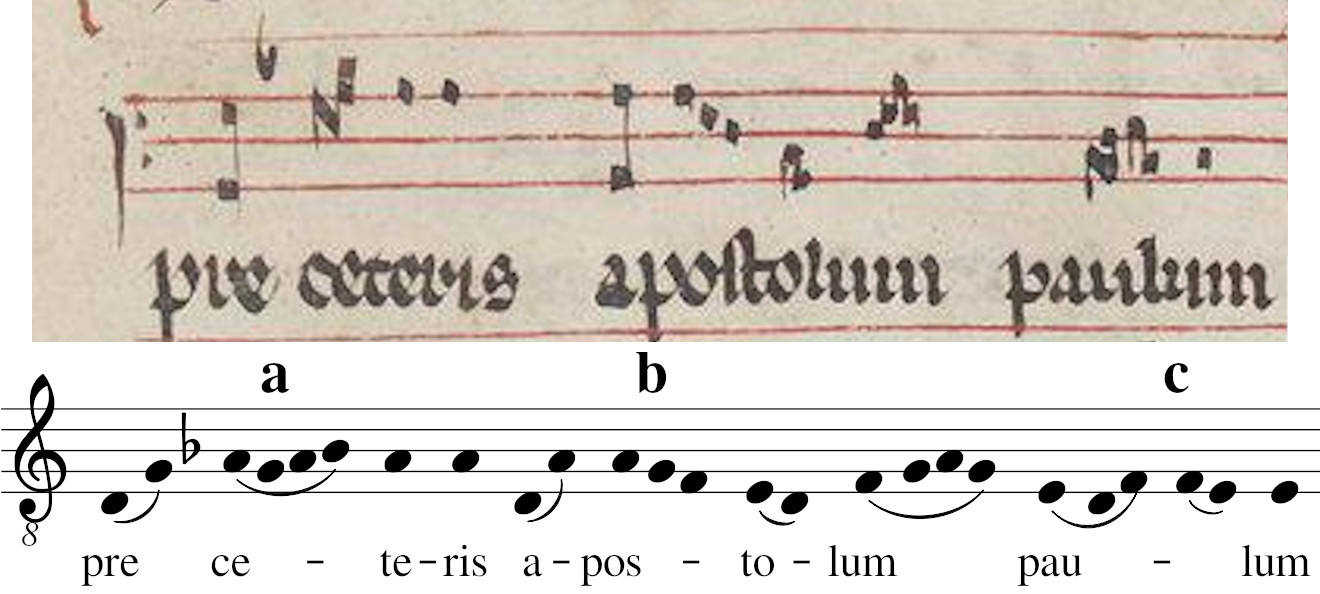 pre ceteris apostolum paulum
a b c
8
pre ce - te - ris a - pos - to - lum pau - lum